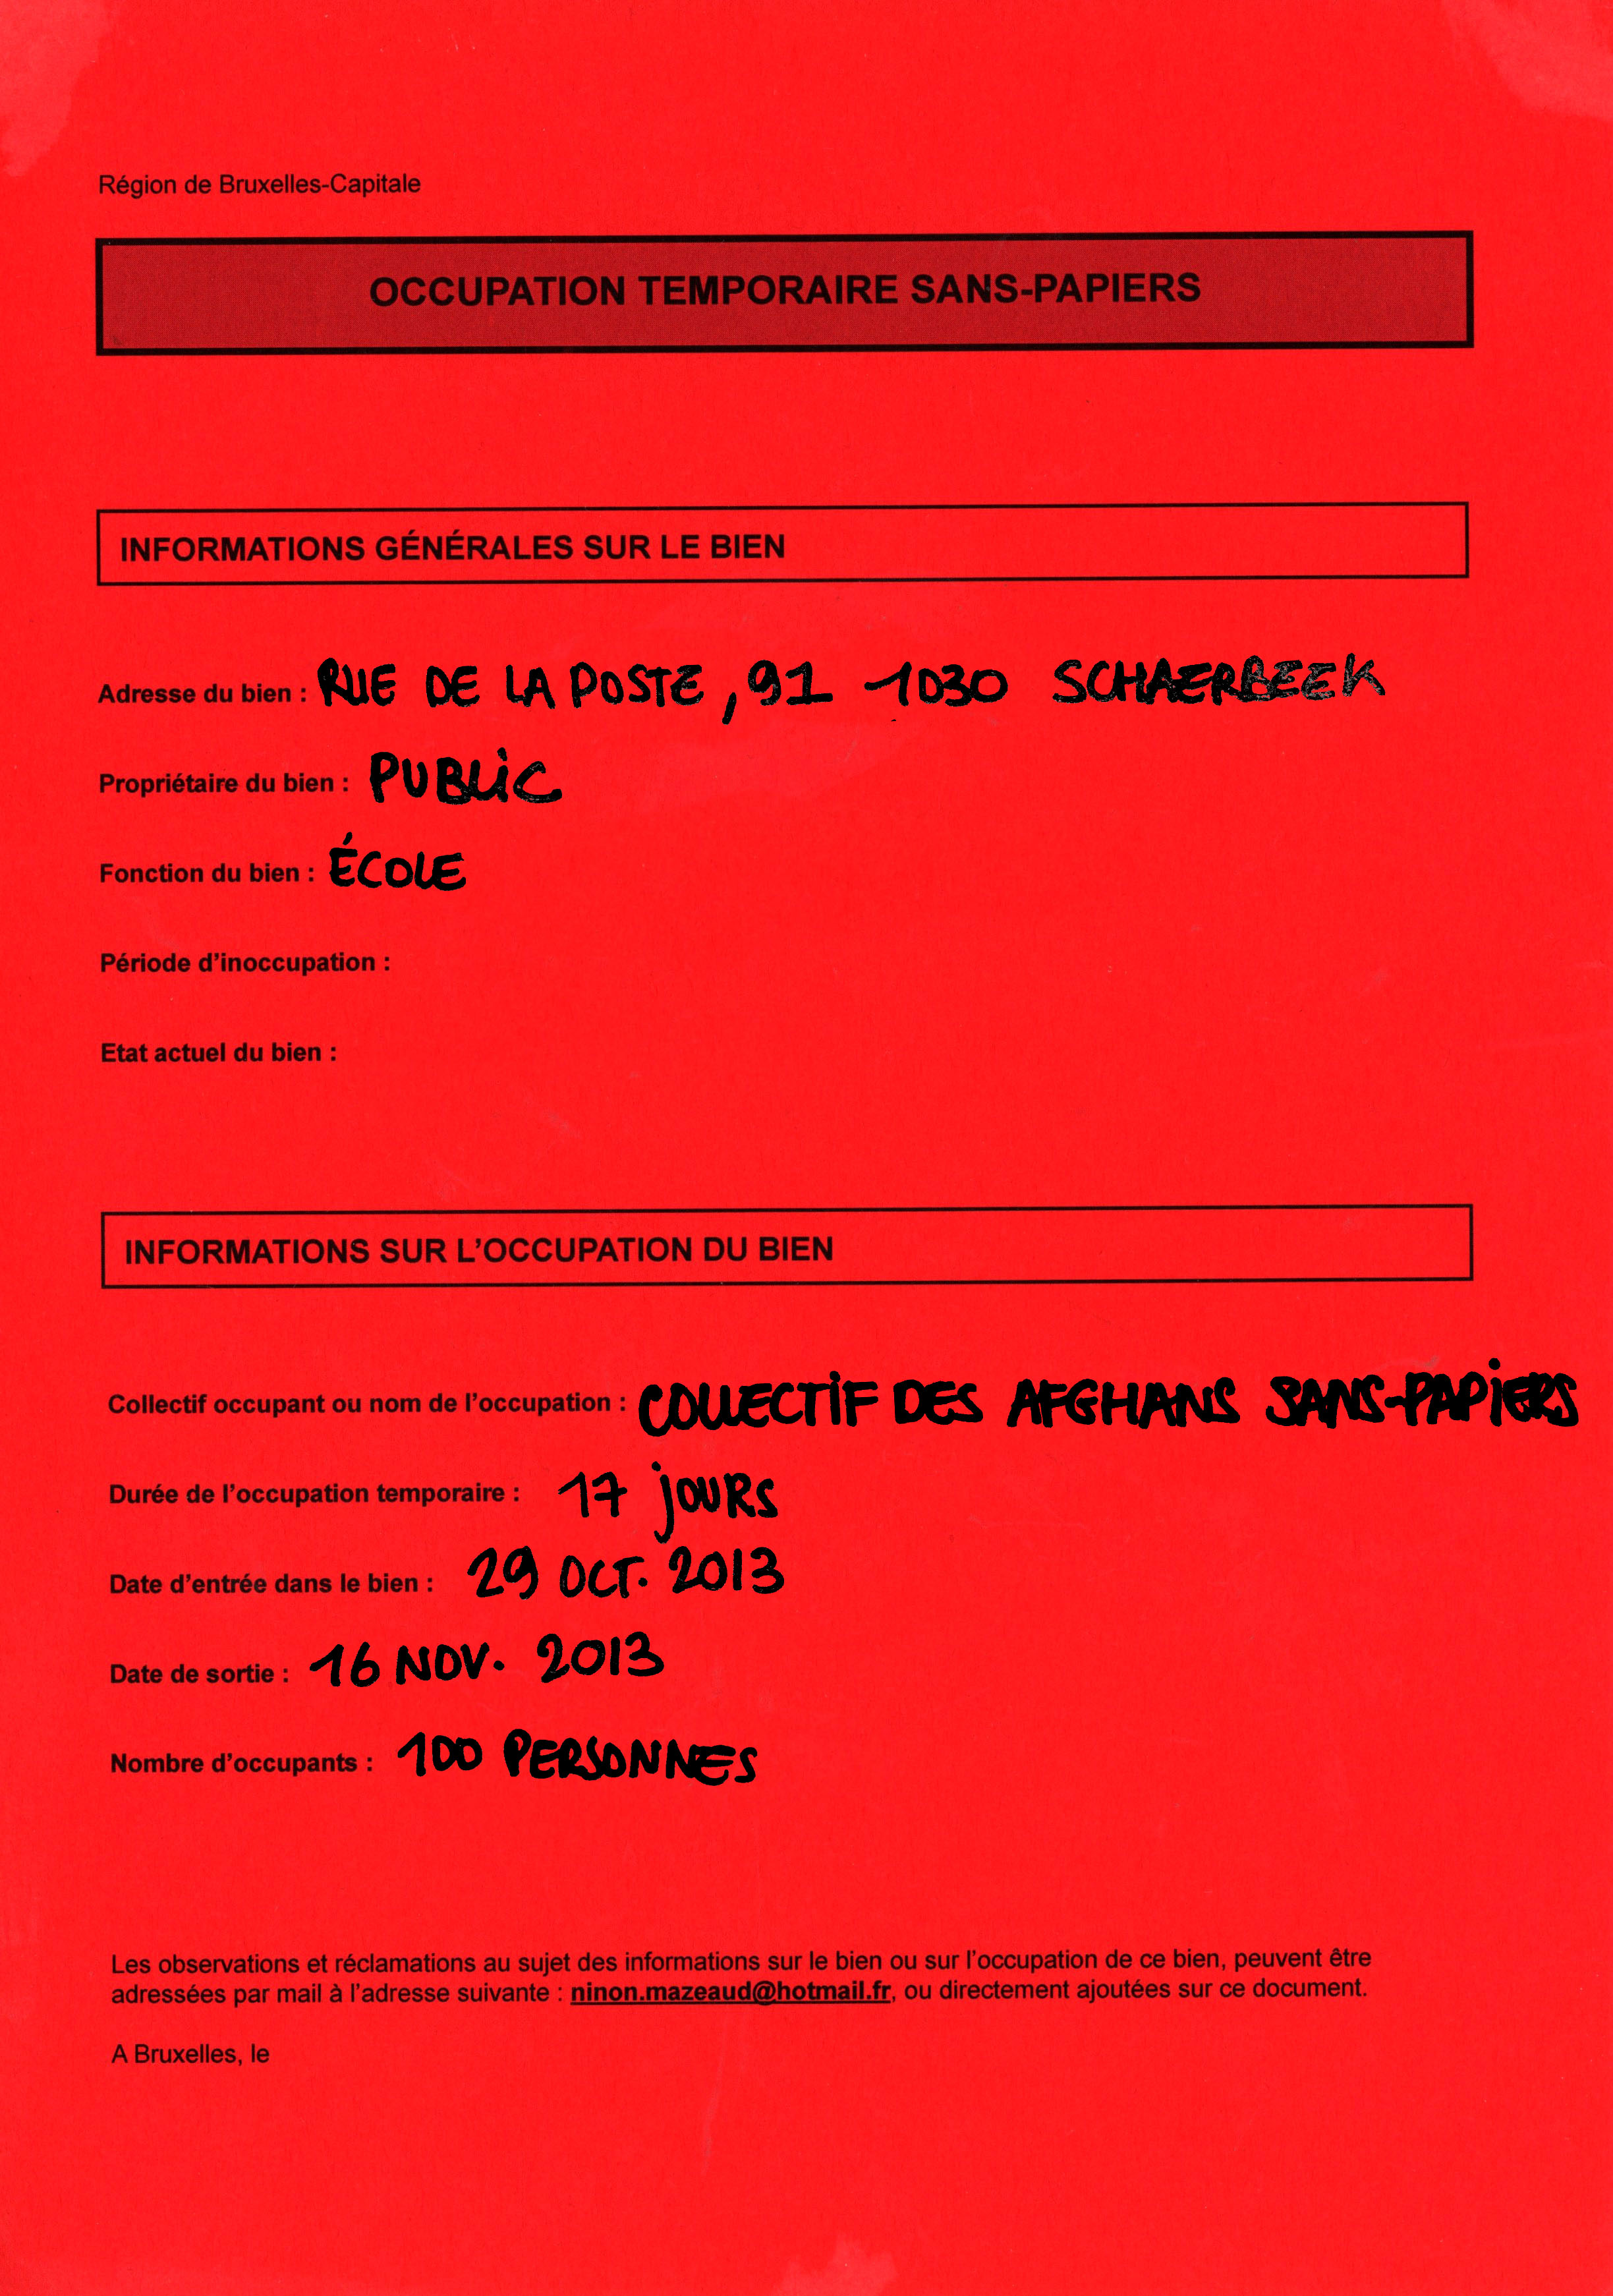 Région de Bruxelles-Capitale
OCCUPATION TEMPORAIRE SANS-PAPIERS
INFORMATIONS GÉNÉRALES SUR LE BIEN
Adresse du bien : RUE DE LA POSTE, 91 1030 SCHAERBEEK
Propriétaire du bien : PUBLIC
Fonction du bien : ÉCOLE
Période d'inoccupation :
Etat actuel du bien :
INFORMATIONS SUR L'OCCUPATION DU BIEN
Collectif occupant ou nom de l'occupation : COLLECTIF DES AFGHANS SANS-PAPIERS
Durée de l'occupation temporaire : 17 JOURS
Date d'entrée dans le bien : 29 OCT. 2013
Date de sortie : 16 NOV. 2013
Nombre d'occupants : 100 PERSONNES
Les observations et réclamations au sujet des informations sur le bien ou sur l'occupation de ce bien, peuvent être
adressées par mail à l'adresse suivante : ninon.mazeaud@hotmail.fr, ou directement ajoutées sur ce document.
A Bruxelles, le